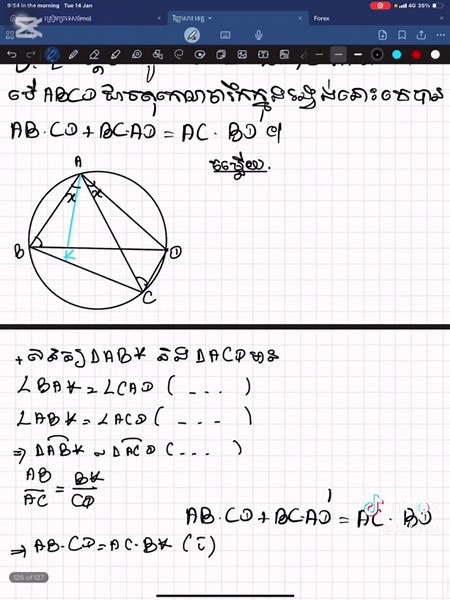 9:54 in the morning Tue 14 Jan
4G 35%
Forex
បើ ABCD ជាចតុកោណចារឹកក្នុងរង្វង់នោះគេបាន
AB·CD + BC·AD = AC · BD ។
ចម្លើយ.
A
x x
B K D
C
+ ពិនិត្យ ΔABK និង ΔACD មាន
∠BAK = ∠CAD ( - - - )
∠ABK = ∠ACD ( - - - )
⇒ ΔABK ~ ΔACD ( - - - )
AB/AC = BK/CD
AB·CD + BC·AD = AC · BD
⇒ AB·CD = AC·BK (i)
126 of 127